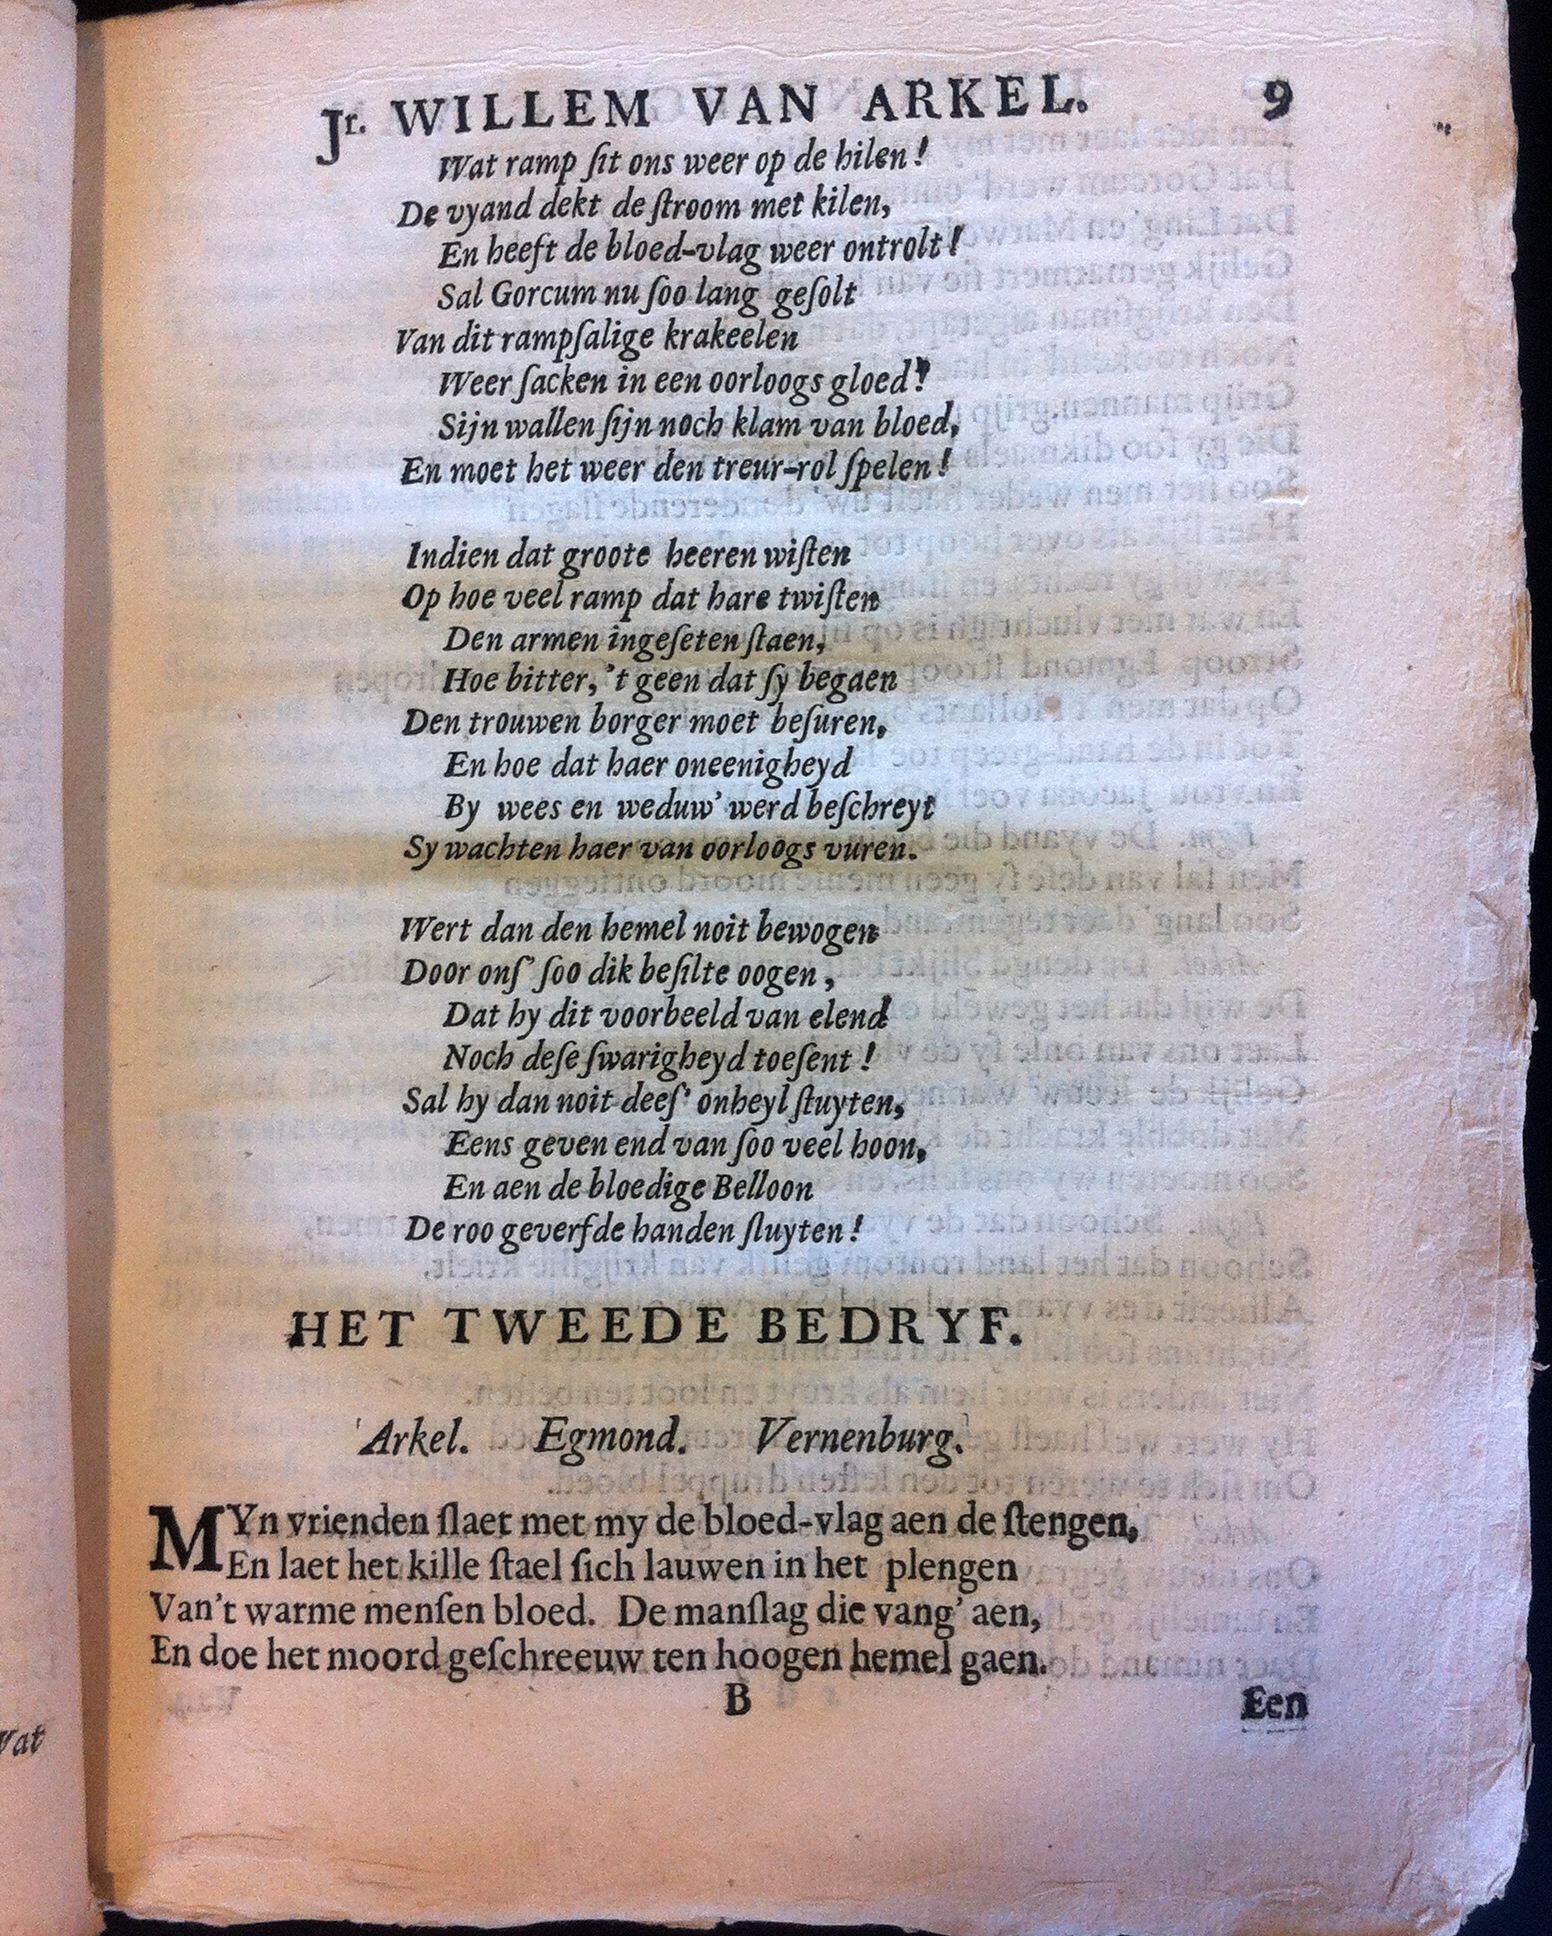 Jr. WILLEM VAN ARKEL. 9
Wat ramp ſit ons weer op de hilen!
De vyand dekt de ſtroom met kilen,
En heeft de bloed-vlag weer ontrolt!
Sal Gorcum nu ſoo lang geſolt
Van dit rampſalige krakeelen
Weer ſacken in een oorloogs gloed!
Sijn wallen ſijn noch klam van bloed,
En moet het weer den treur-rol ſpelen!
Indien dat groote heeren wiſten
Op hoe veel ramp dat hare twiſten
Den armen ingeſeten ſtaen,
Hoe bitter, 't geen dat ſy begaen
Den trouwen borger moet beſuren,
En hoe dat haer oneenigheyd
By wees en weduw' werd beſchreyt
Sy wachten haer van oorloogs vuren.
Wert dan den hemel noit bewogen
Door onſ' ſoo dik beſilte oogen,
Dat hy dit voorbeeld van elend
Noch deſe ſwarigheyd toeſent!
Sal hy dan noit deeſ' onheyl ſtuyten,
Eens geven end van ſoo veel hoon,
En aen de bloedige Belloon
De roo geverfde handen ſluyten!
HET TWEEDE BEDRYF.
Arkel. Egmond. Vernenburg.
MYn vrienden ſlaet met my de bloed-vlag aen de ſtengen,
En laet het kille ſtael ſich lauwen in het plengen
Van't warme menſen bloed. De manſlag die vang' aen,
En doe het moord geſchreeuw ten hoogen hemel gaen.
B Een
Wat